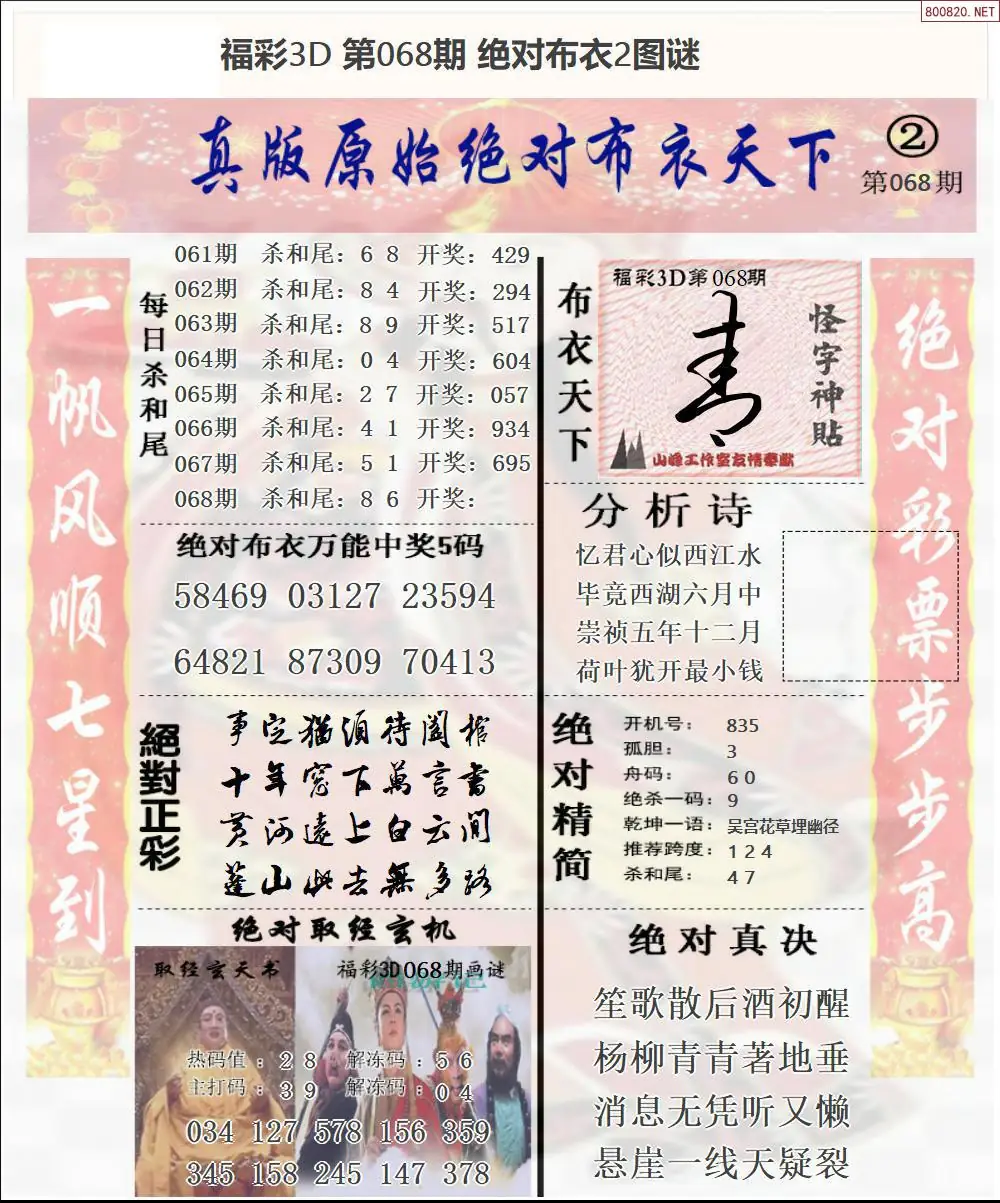 800820.NET
福彩3D 第068期 绝对布衣2图谜
真版原始绝对布衣天下
②
第068期
一帆风顺七星到
每日杀和尾
061期 杀和尾：6 8 开奖：429
062期 杀和尾：8 4 开奖：294
063期 杀和尾：8 9 开奖：517
064期 杀和尾：0 4 开奖：604
065期 杀和尾：2 7 开奖：057
066期 杀和尾：4 1 开奖：934
067期 杀和尾：5 1 开奖：695
068期 杀和尾：8 6 开奖：
绝对布衣万能中奖5码
58469 03127 23594
64821 87309 70413
絕對正彩
事定猶須待闔棺
十年窓下萬言書
黄河遠上白云间
蓬山此去無多路
绝对取经玄机
取经玄天书
福彩3D068期画谜
热码值：2 8 解冻码：5 6
主打码：3 9 解冻码：0 4
034 127 578 156 359
345 158 245 147 378
布衣天下
福彩3D第068期
怪字神貼
山峰工作室友情奉献
分析诗
忆君心似西江水
毕竟西湖六月中
崇祯五年十二月
荷叶犹开最小钱
绝对精简
开机号：835
孤胆：3
舟码：6 0
绝杀一码：9
乾坤一语：吴宫花草埋幽径
推荐跨度：1 2 4
杀和尾：4 7
绝对真决
笙歌散后酒初醒
杨柳青青著地垂
消息无凭听又懒
悬崖一线天疑裂
绝对彩票步步高